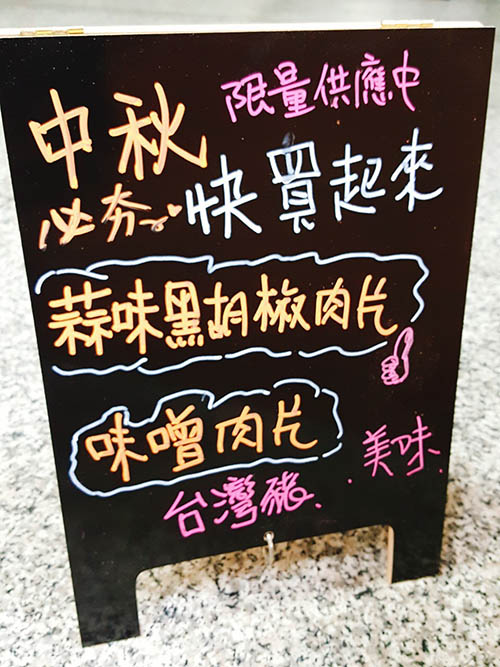 限量供應中
中秋
必夯
快買起來
蒜味黑胡椒肉片
味噌肉片
美味
台灣豬